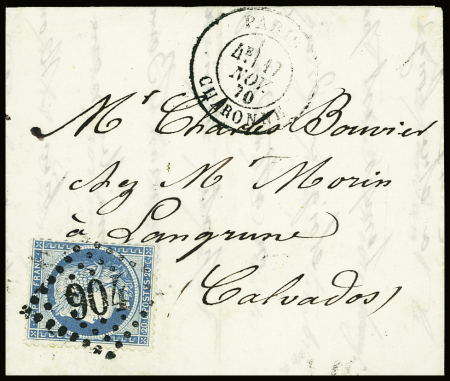 PARIS
4E/ 17
NOV.
70
CHARONNE
Mr Charles Bouvier
chez Mr Morin
à Langrune
(Calvados)
904
FRANC
POSTES
20 C